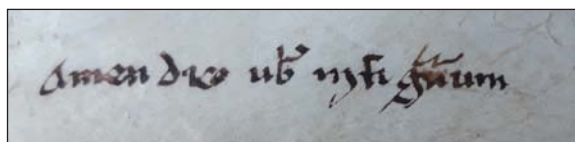 Amen dico ub̄ nisi gͣnum